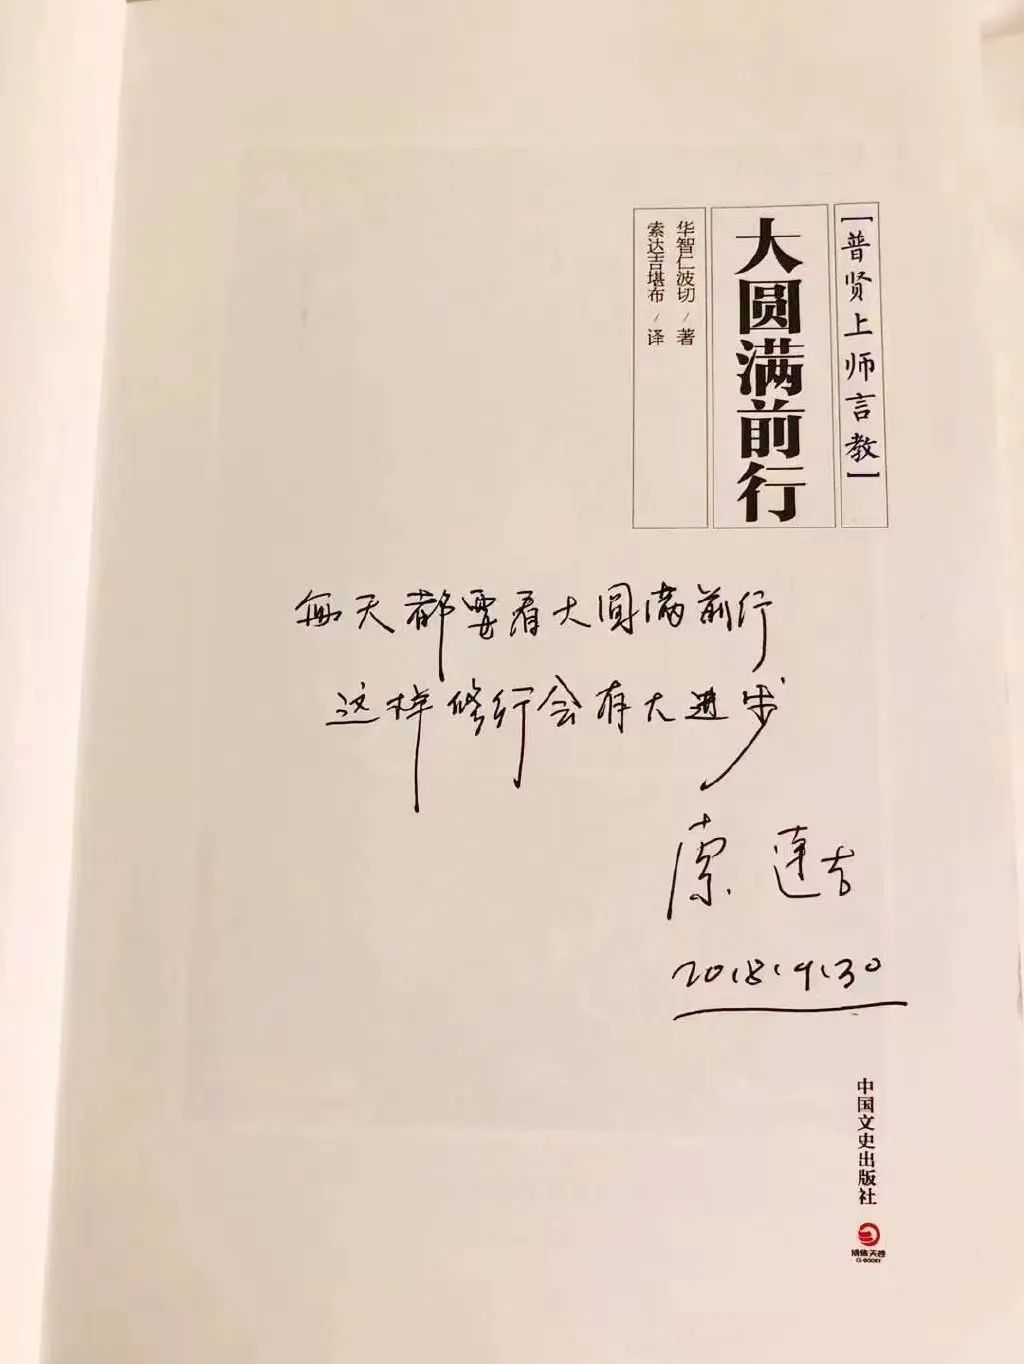 [普贤上师言教]
大圆满前行
华智仁波切/著
索达吉堪布/译
每天都要看大圆满前行
这样修行会有大进步
索达吉
2018.9.30
中国文史出版社
博集天卷
CS-BOOKY